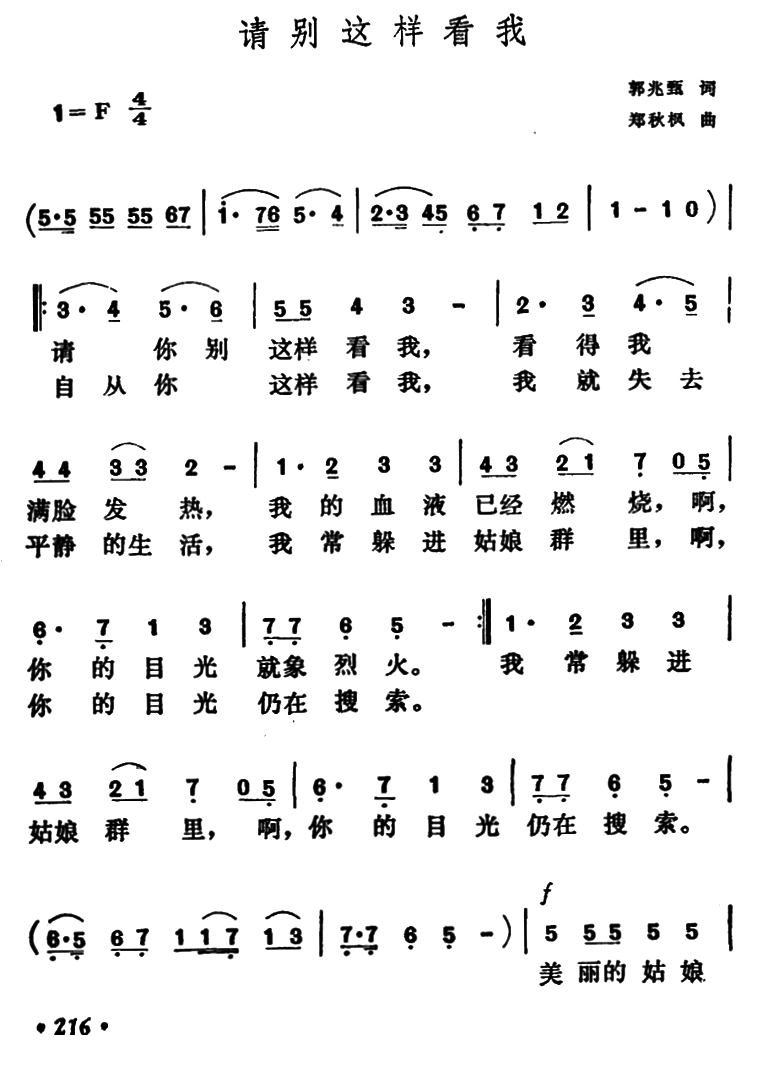 请别这样看我
1=F 4/4
郭兆甄 词
郑秋枫 曲
(5·5 55 55 67 | i· 76 5· 4 | 2·3 45 67 12 | 1 - 1 0) |
‖: 3· 4 5· 6 | 55 4 3 - | 2· 3 4· 5 |
请 你别 这样 看 我, 看 得 我
自 从 你 这样 看 我, 我 就 失 去
44 33 2 - | 1· 2 3 3 | 43 21 7 05 |
满脸 发 热, 我 的 血 液 已经 燃 烧, 啊,
平静 的生 活, 我 常 躲 进 姑娘 群 里, 啊,
6· 7 1 3 | 77 6 5 - :‖ 1· 2 3 3 |
你 的 目 光 就象 烈 火。 我 常 躲 进
你 的 目 光 仍在 搜 索。
43 21 7 05 | 6· 7 1 3 | 77 6 5 - |
姑娘 群 里, 啊, 你 的 目 光 仍在 搜 索。
f
(6·5 67 117 13 | 7·7 6 5 -) | 5 55 5 5 |
美 丽的 姑 娘
·216·